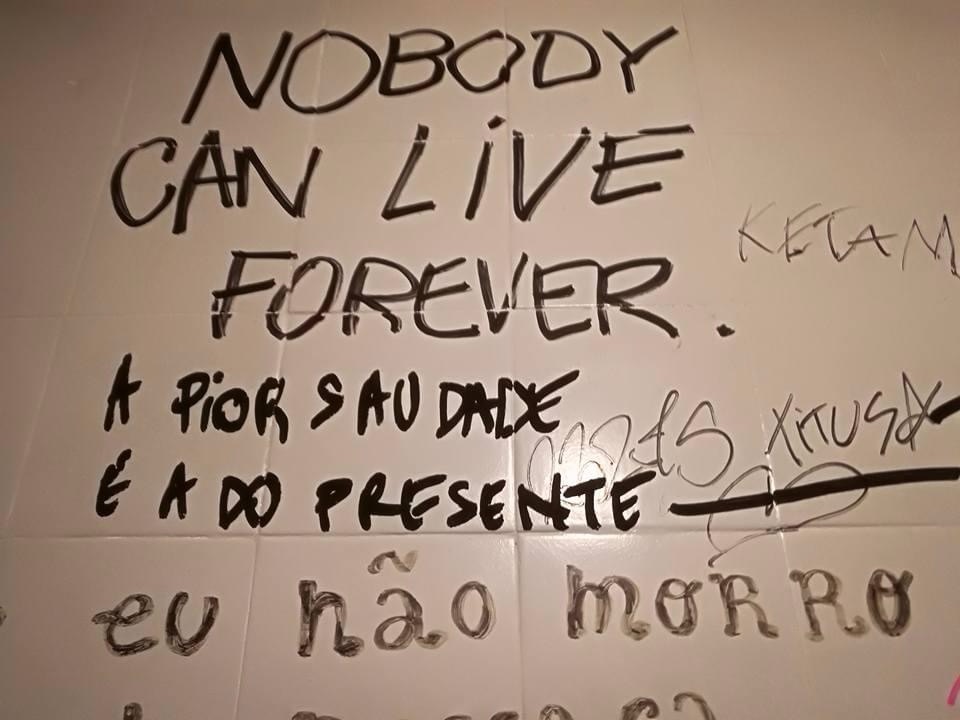 NOBODY
CAN LiVE
FOREVER.
KETAM
A PiOR SAUDADE
É A DO PRESENTE
eu não morro